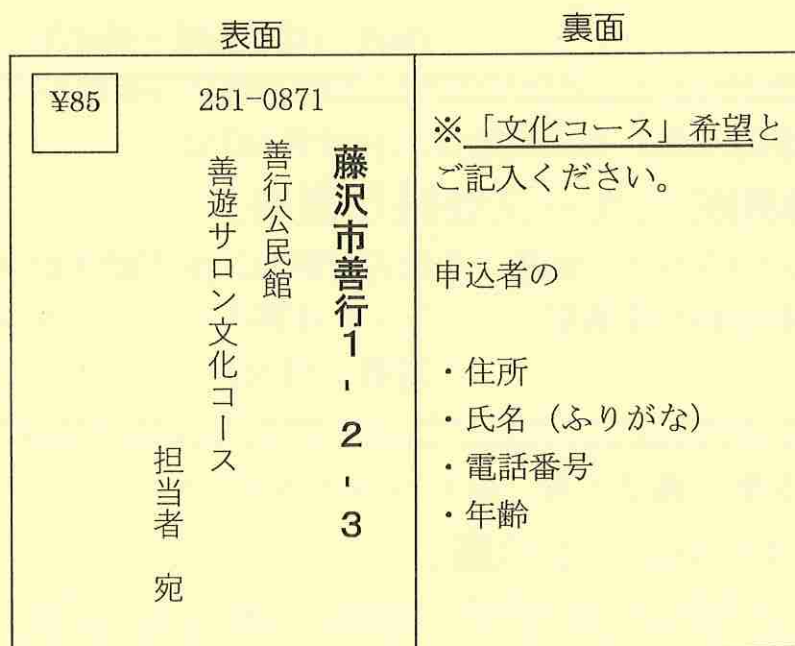 表面
¥85
251-0871
藤沢市善行1-2-3
善行公民館
善遊サロン文化コース
担当者 宛
裏面
※「文化コース」希望と
ご記入ください。
申込者の
・住所
・氏名（ふりがな）
・電話番号
・年齢